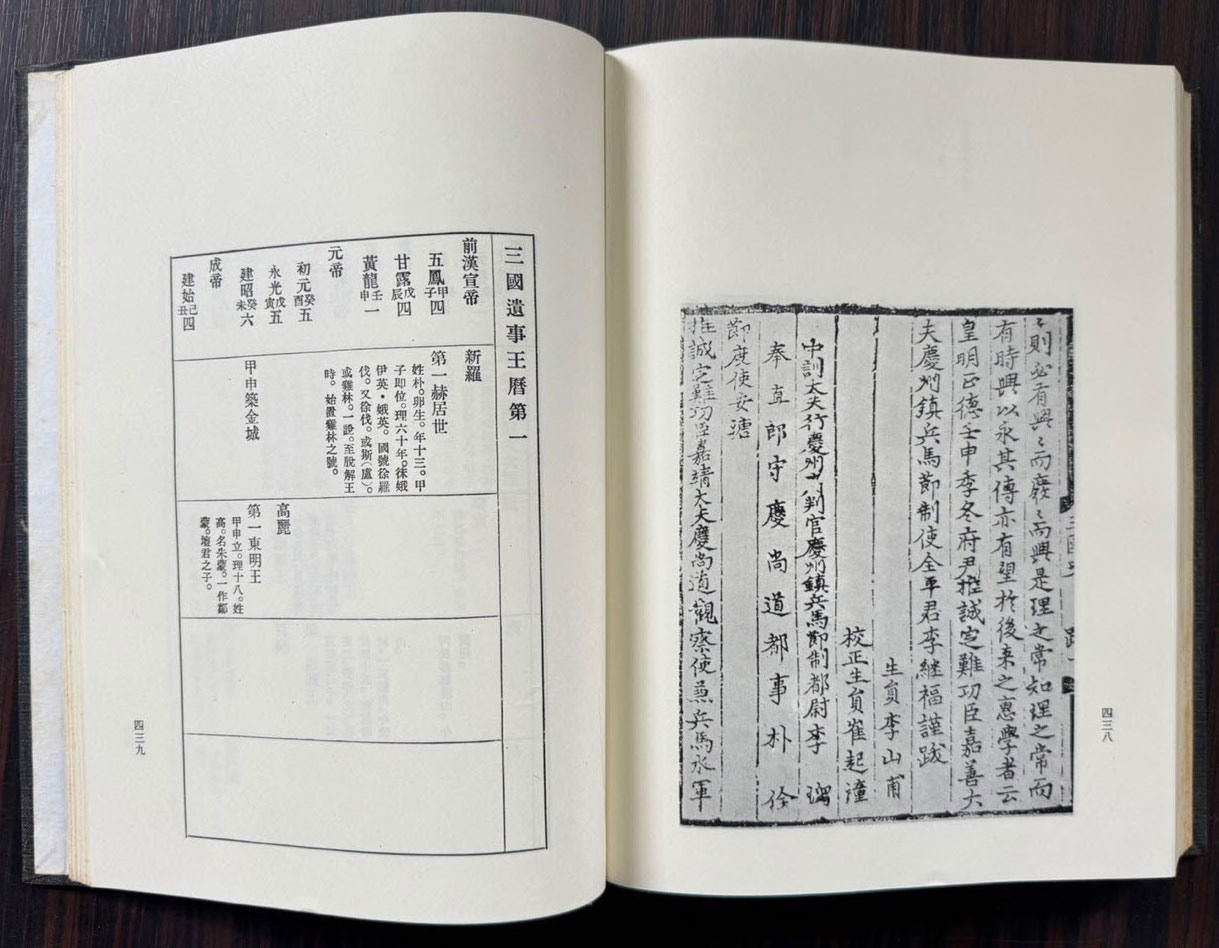 〻則必有興〻而廢〻而興是理之常知理之常而
有時興以永其傳亦有望於後来之惠學者云
皇明正德壬申季冬府尹推誠定難功臣嘉善大
夫慶州鎮兵馬節制使全平君李継福謹跋
生貟李山甫
校正生貟崔起潼
中訓大夫行慶州判官慶州鎮兵馬節制都尉李 瑠
奉直郎守慶尚道都事朴佺
節度使安瑭
推誠定難功臣嘉靖大夫慶尚道觀察使兼兵馬水軍
四三八
三國遺事王曆第一
前漢宣帝
五鳳甲子四
甘露戊辰四
黃龍壬申一
元帝
初元癸酉五
永光戊寅五
建昭癸未六
成帝
建始己丑四
新羅
第一赫居世
姓朴。卵生。年十三。甲
子即位。理六十年。徠娥
伊英・娥英。國號徐羅
伐。又徐伐。或斯(盧)。
或雞林。一說。至脫解王
時。始置雞林之號。
甲申築金城
高麗
第一東明王
甲申立。理十八。姓
高。名朱蒙。一作鄒
蒙。壇君之子。
四三九